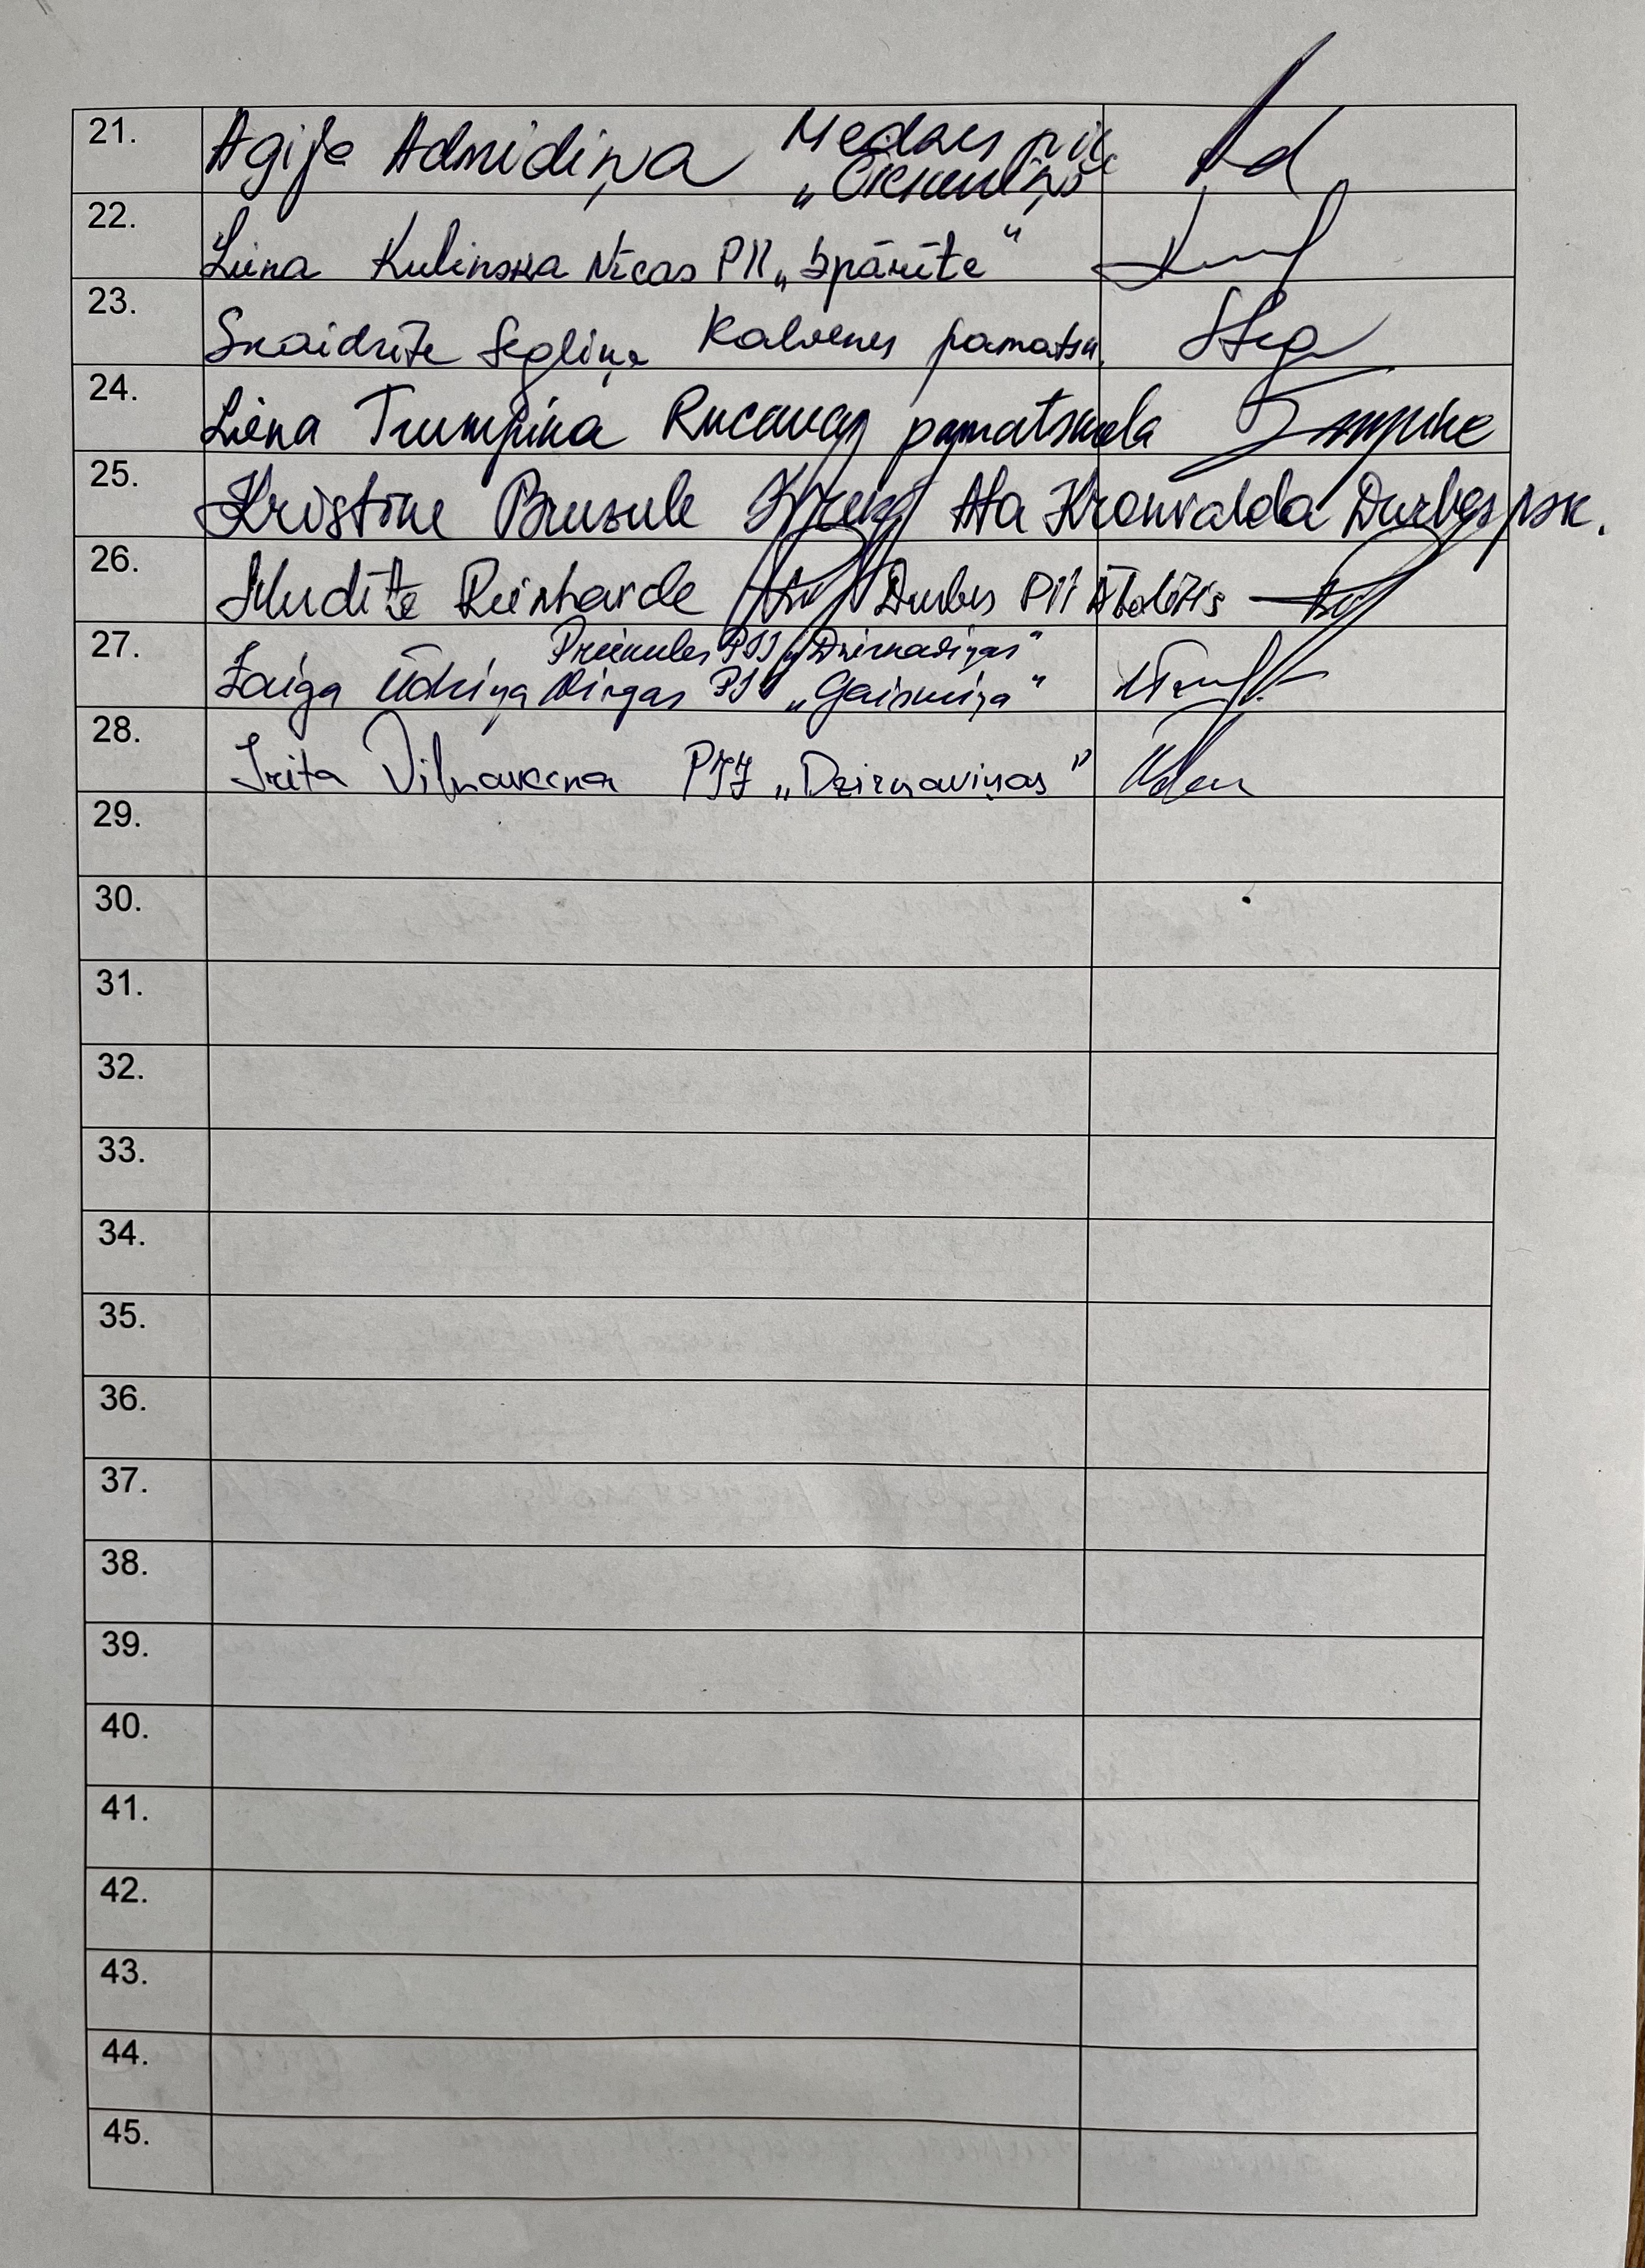 21. Agija Admidiņa Medzes pii
„Čiekuriņš"
22. Liena Kulinska Nīcas PII „Spārīte"
23. Skaidrīte Segliņa Kalvenes pamatsk.
24. Liena Trumpina Rucavas pamatskola
25. Kristīne Brusule Ata Kronvalda Durbes psk.
26. Mudīte Reinharde Durbes PII Ābolītis
Priekules PII „Dzirnaviņas"
27. Zaiga Ūdriņa Virgas PII „Gaismiņa"
28. Irita PII „Dzirnaviņas"
29.
30.
31.
32.
33.
34.
35.
36.
37.
38.
39.
40.
41.
42.
43.
44.
45.